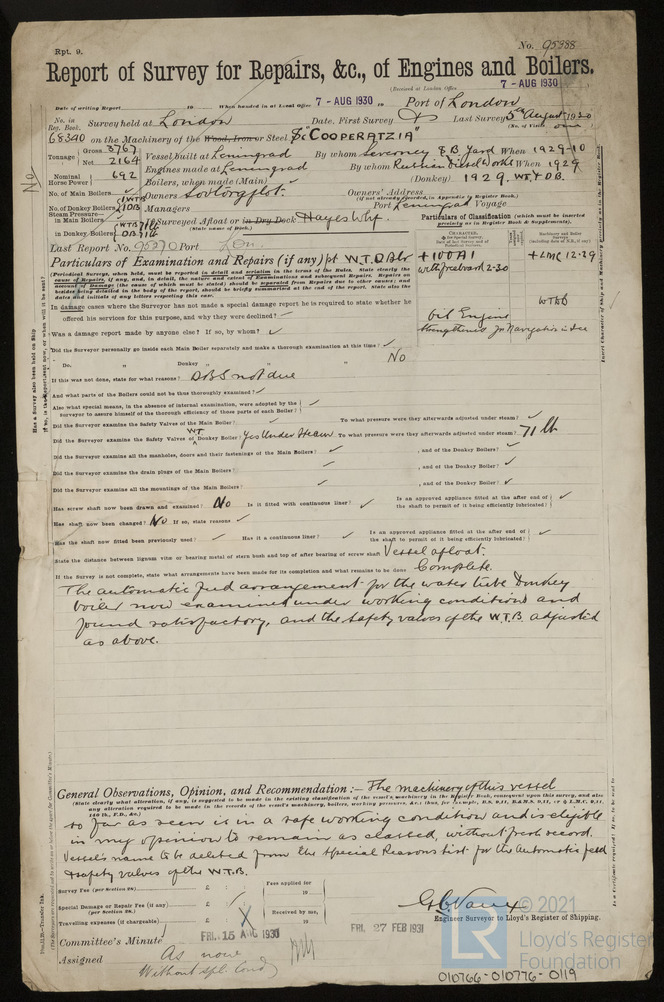 Rpt. 9.
No. 95388
Report of Survey for Repairs, &c., of Engines and Boilers.
(Received at London Office 7 - AUG 1930
Date of writing Report 19 When handed in at Local Office 7 - AUG 1930 19 Port of London
No. in Reg. Book. Survey held at London Date, First Survey Last Survey 5th August 1930
(No. of Visits one)
68340 on the Machinery of the Wood, Iron or Steel "COOPERATZIA"
Tonnage Gross 3767 Net 2164 Vessel built at Leningrad By whom Severney S B Yard When 1929-10
Engines made at Leningrad By whom Russian Diesel Works When 1929
Nominal Horse Power 692 Boilers, when made (Main) (Donkey) 1929. WT & DB.
No. of Main Boilers Owners Sovtorgflot. Owners' Address
(if not already recorded, in Appendix to Register Book.)
No. of Donkey Boilers 1WTB 1DB Managers Port Leningrad Voyage
Steam Pressure in Main Boilers Surveyed Afloat or in Dry Dock Hayes Whf.
(State name of Dock.)
in Donkey Boilers
Particulars of Classification (which must be inserted precisely as in Register Book & Supplements).
Last Report No. 95270 Port Lon.
Particulars of Examination and Repairs (if any) pt W.T.DBlr
+100A1
with freeboard 2-30
+LMC 12-29
WTDB
Oil Engine
Strengthened for Navigation in Ice
(Periodical Surveys, when held, must be reported in detail and seriatim in the terms of the Rules. State clearly the cause of Repairs, if any, and, in detail, the nature and extent of Examinations and subsequent Repairs. Repairs on account of Damage (the cause of which must be stated) should be separated from Repairs due to other causes; and besides being detailed in the body of the report, should be briefly summarized at the end of the report. State also the dates and initials of any letters respecting this case.)
In damage cases where the Surveyor has not made a special damage report he is required to state whether he
offered his services for this purpose, and why they were declined?
Was a damage report made by anyone else? If so, by whom?
Did the Surveyor personally go inside each Main Boiler separately and make a thorough examination at this time?
Do. " Donkey " " " " No
If this was not done, state for what reasons? DBS not due
And what parts of the Boilers could not be thus thoroughly examined?
Also what special means, in the absence of internal examination, were adopted by the Surveyor to assure himself of the thorough efficiency of those parts of each Boiler?
Did the Surveyor examine the Safety Valves of the Main Boiler? To what pressure were they afterwards adjusted under steam?
Did the Surveyor examine the Safety Valves of WT Donkey Boiler? Yes Under Steam To what pressure were they afterwards adjusted under steam? 71 lb
Did the Surveyor examine all the manholes, doors and their fastenings of the Main Boilers? , and of the Donkey Boiler?
Did the Surveyor examine the drain plugs of the Main Boilers? , and of the Donkey Boiler?
Did the Surveyor examine all the mountings of the Main Boilers? , and of the Donkey Boiler?
Has screw shaft now been drawn and examined? No Is it fitted with continuous liner? Is an approved appliance fitted at the after end of the shaft to permit of it being efficiently lubricated?
Has shaft now been changed? No If so, state reasons
Has the shaft now fitted been previously used? Has it a continuous liner? Is an approved appliance fitted at the after end of the shaft to permit of it being efficiently lubricated?
State the distance between lignum vitæ or bearing metal of stern bush and top of after bearing of screw shaft Vessel afloat.
If the Survey is not complete, state what arrangements have been made for its completion and what remains to be done Complete.
The automatic feed arrangement for the water tube Donkey
boiler now examined under working conditions and
found satisfactory, and the safety valves of the W.T.B. adjusted
as above.
General Observations, Opinion, and Recommendation:— The machinery of this vessel
(State clearly what alteration, if any, is suggested to be made in the existing classification of the vessel's machinery in the Register Book, consequent upon this survey, and also any alteration required to be made in the records of the vessel's machinery, boilers, working pressures, &c.
so far as seen is in a safe working condition and is eligible
in my opinion to remain as classed, without fresh record.
Vessel's name to be deleted from the Special Reasons list for the automatic feed
& safety valves of the W.T.B.
Survey Fee (per Section 29) £ : : Fees applied for 19
Special Damage or Repair Fee (if any) (per Section 29.) £ : : Received by me, 19
Travelling expenses (if chargeable) £ : :
Engineer Surveyor to Lloyd's Register of Shipping.
Committee's Minute FRI. 15 AUG 1930 FRI. 27 FEB 1931
Assigned As now
Without spl. Cond
© 2021
LR
Lloyd's Register
Foundation
010766-010776-0119